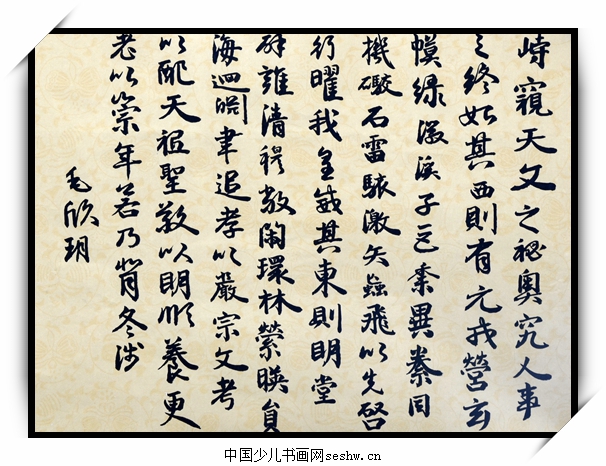 峙窺天文之祕奥究人事
之終始其西則有元戎營玄
幙緑徽溪子巨黍異絭同
機礮石雷駭激矢蝱飛以先啓
行曜我皇威其東則明堂
辟雍清穆敞閑環林縈暎員
海迴淵聿追孝以嚴宗文考
以配天祗聖敬以明順養更
老以崇年若乃背冬涉
毛欣玥
中国少儿书画网seshw.cn